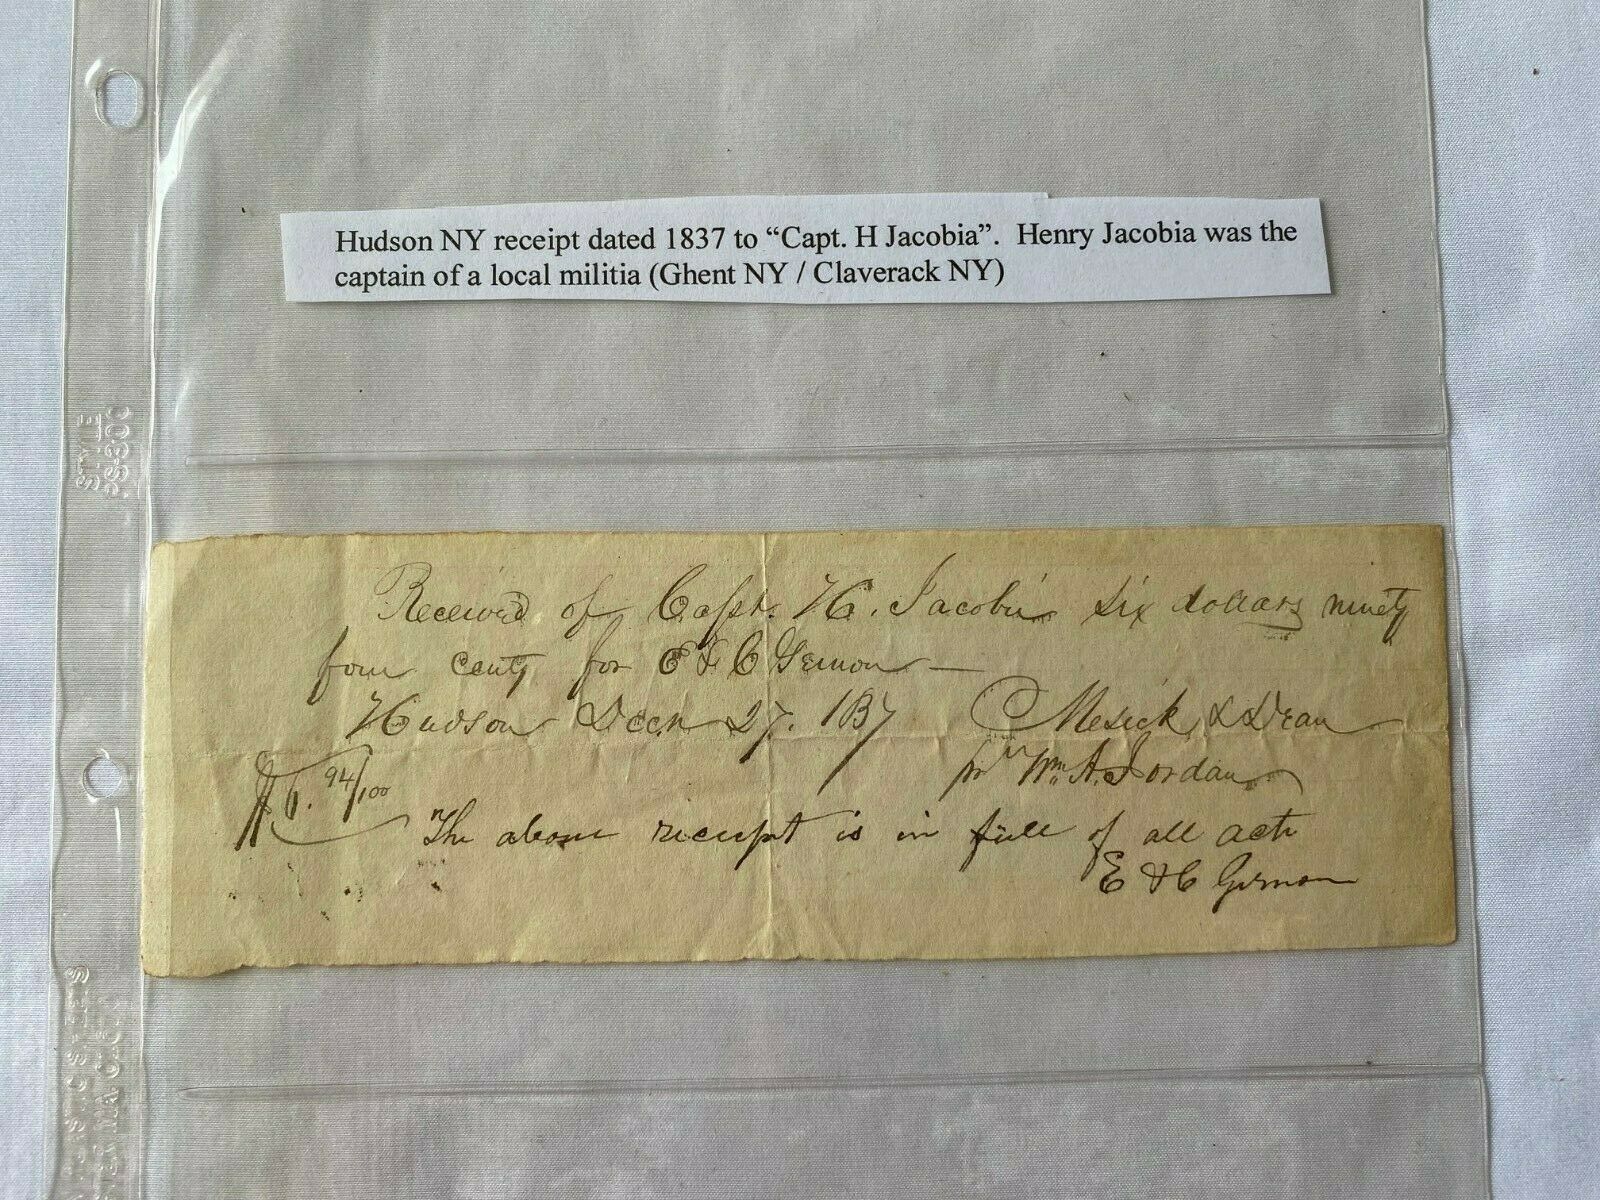 Hudson NY receipt dated 1837 to “Capt. H Jacobia”. Henry Jacobia was the
captain of a local militia (Ghent NY / Claverack NY)
Received of Capt. H. Jacobia six dollars ninety
four cents for E & C Gernon —
Hudson Decr 27. 1837 Mesick & Dean
$6. 94/100 pr Wm A. Jordan
The above receipt is in full of all acts
E & C Gernon
STYLE